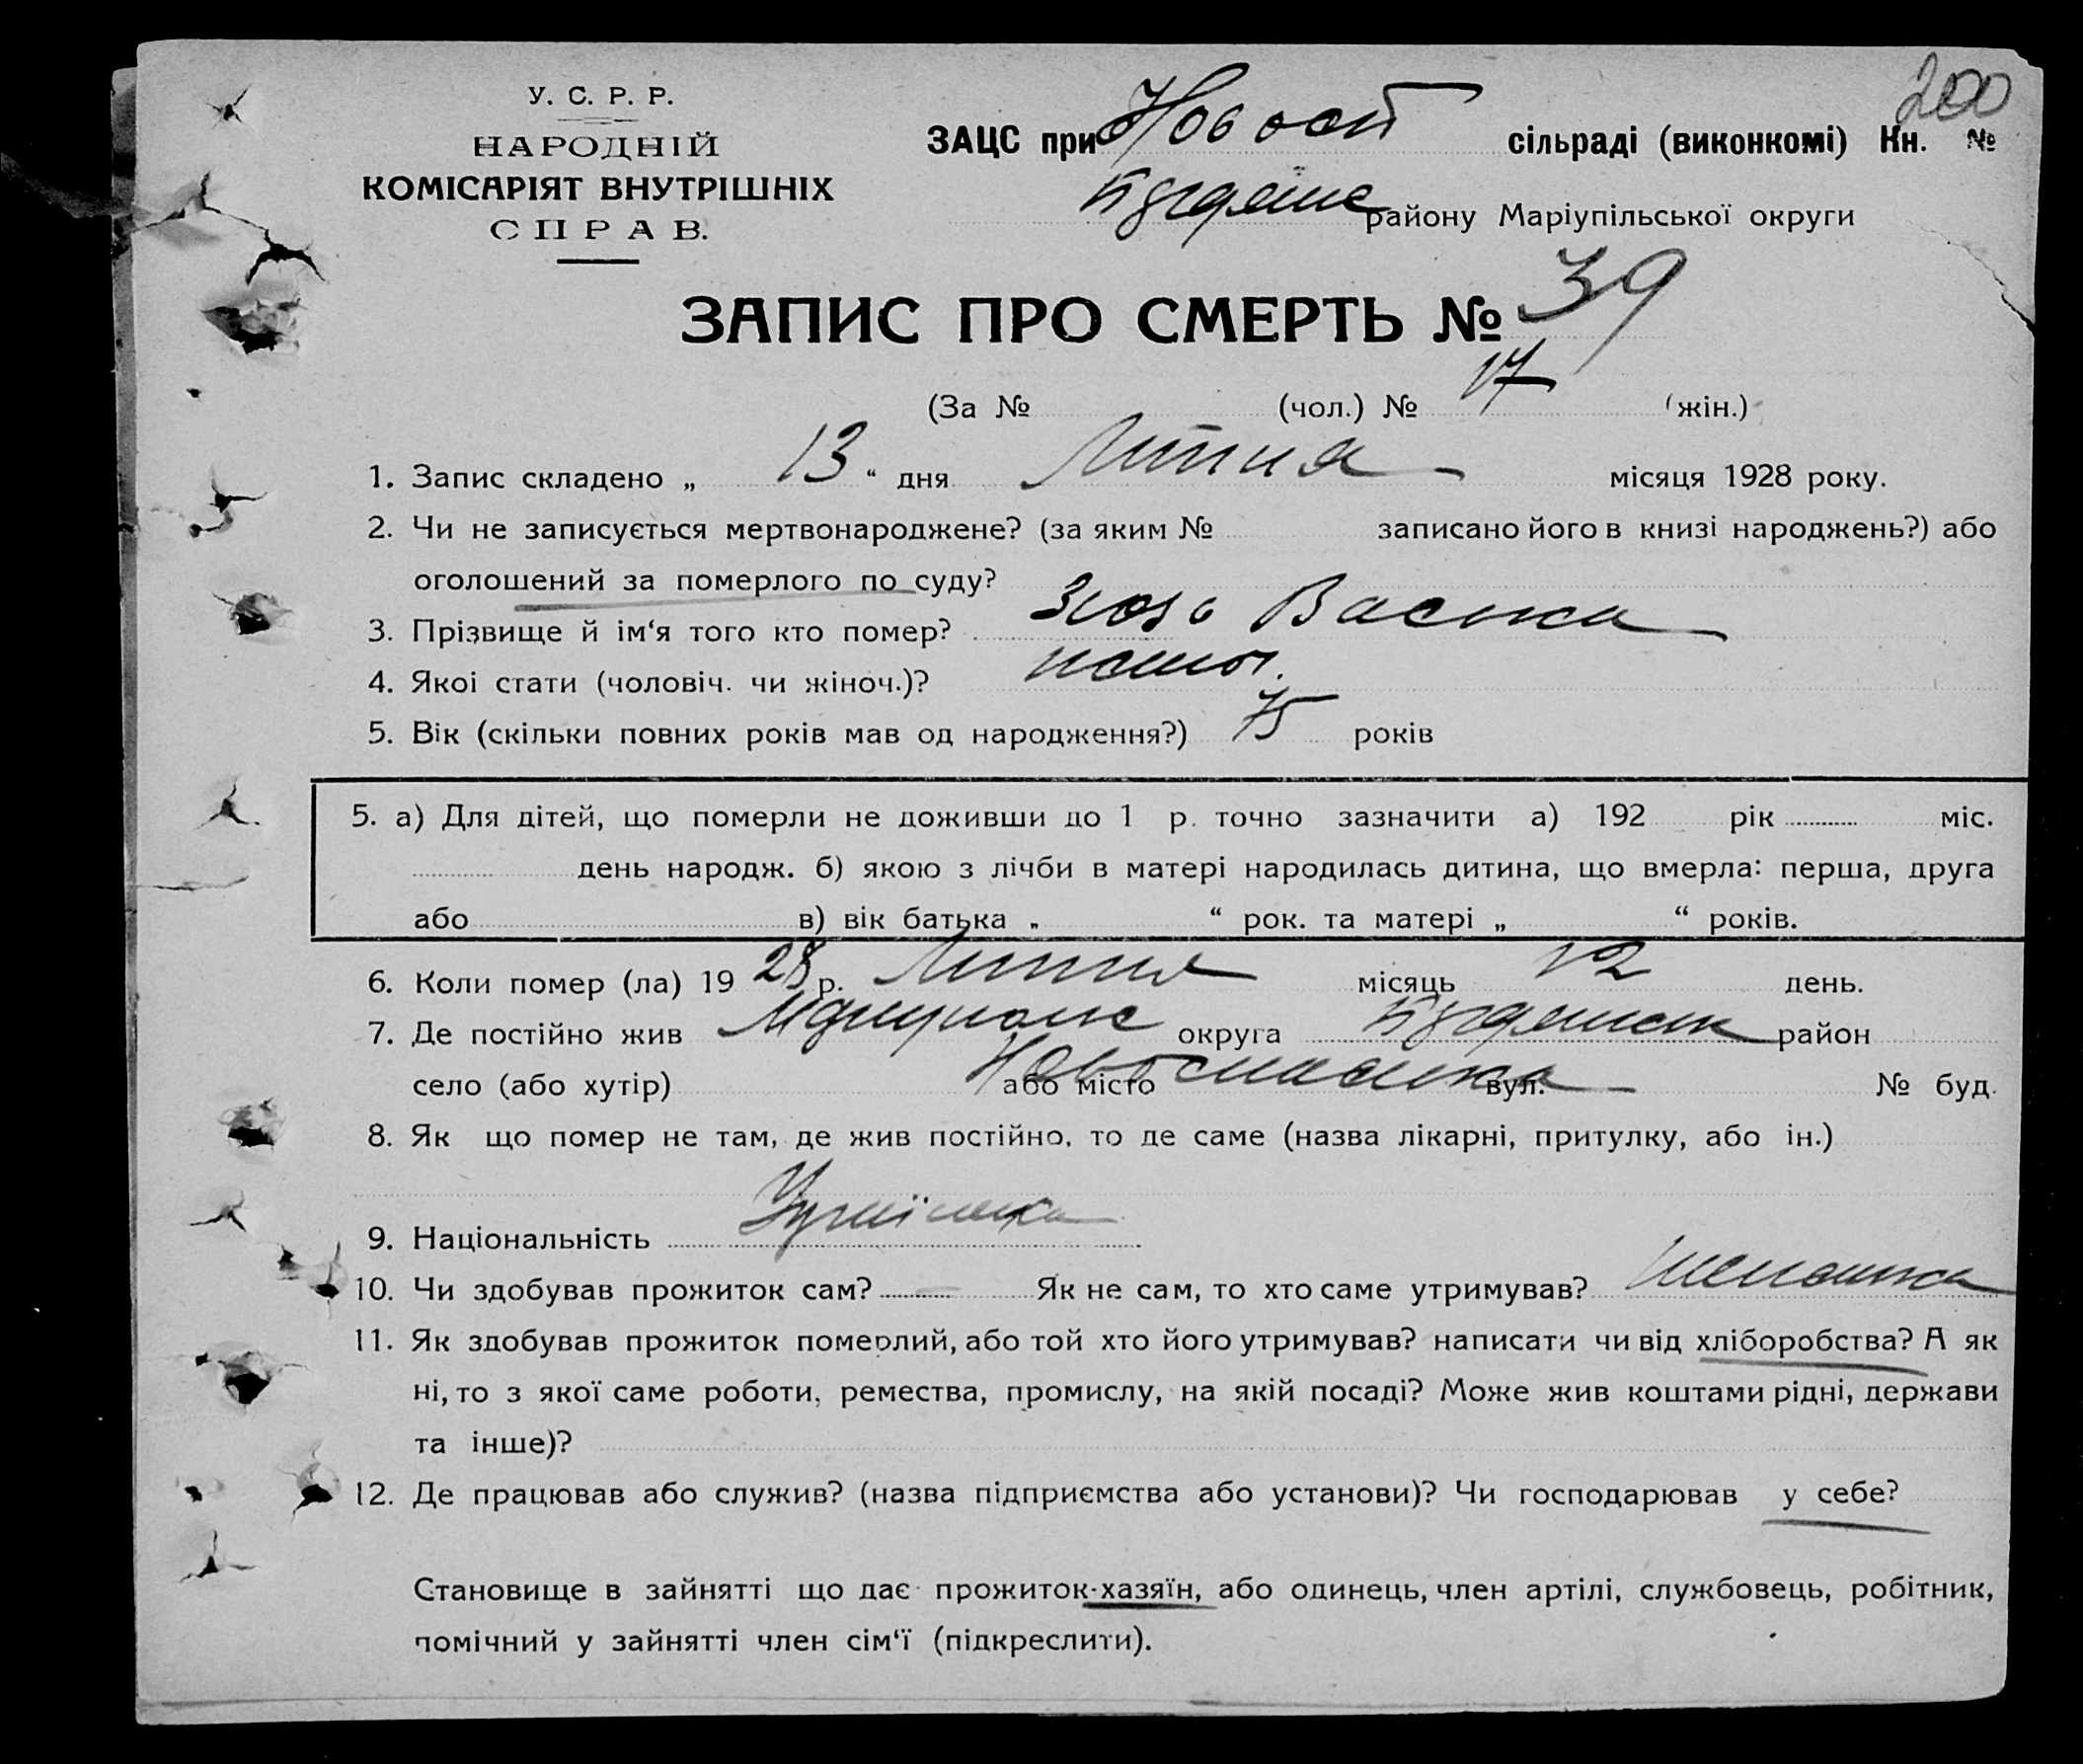 200
У. С. Р. Р.
НАРОДНІЙ
КОМІСАРІЯТ ВНУТРІШНІХ
СПРАВ.
ЗАЦС при сільраді (виконкомі) Кн. №
району Маріупільської округи
ЗАПИС ПРО СМЕРТЬ № 39
(За № (чол.) № 17 (жін.)
1. Запис складено „ 13 “ дня Липня місяця 1928 року.
2. Чи не записується мертвонароджене? (за яким № записано його в книзі народжень?) або
оголошений за померлого по суду?
3. Прізвище й ім‘я того кто помер?
4. Якоі стати (чоловіч. чи жіноч.)?
5. Вік (скільки повних років мав од народження?) 75 років
5. а) Для дітей, що померли не доживши до 1 р. точно зазначити а) 192 рік міс.
день народж. б) якою з лічби в матері народилась дитина, що вмерла: перша, друга
або в) вік батька „ “ рок. та матері „ “ років.
6. Коли помер (ла) 19 28 р. Липня місяць 12 день.
7. Де постійно жив округа район
село (або хутір) або місто вул. № буд.
8. Як що помер не там, де жив постійно, то де саме (назва лікарні, притулку, або ін.)
9. Національність Українка
10. Чи здобував прожиток сам? — Як не сам, то хто саме утримував?
11. Як здобував прожиток померлий, або той хто його утримував? написати чи від хліборобства? А як
ні, то з якої саме роботи, ремества, промислу, на якій посаді? Може жив коштами рідні, держави
та інше)?
12. Де працював або служив? (назва підприємства або установи)? Чи господарював у себе?
Становище в зайнятті що дає прожиток-хазяїн, або одинець, член артілі, службовець, робітник,
помічний у зайнятті член сім‘ї (підкреслити).